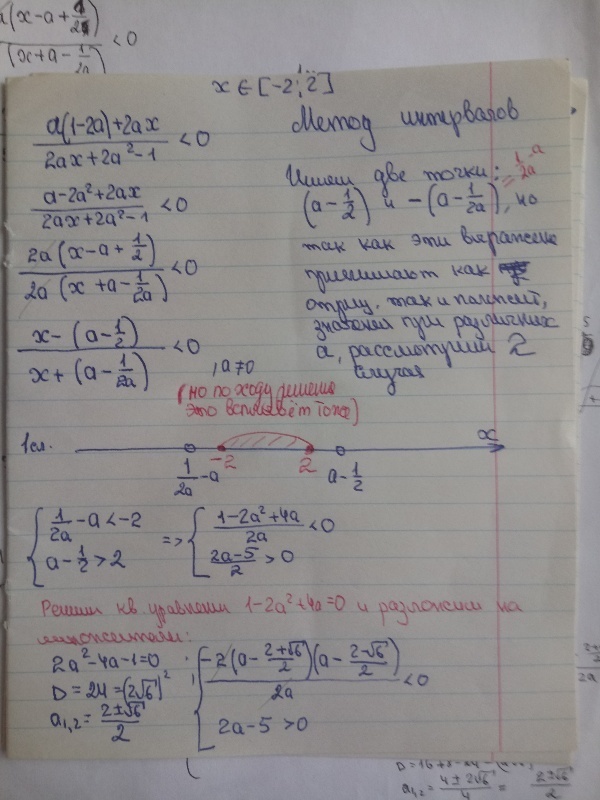 a(x-a+1/2)
(x+a-1/2a) <0
x ∈ [-2; 2]
(a(1-2a)+2ax)/(2ax+2a²-1) <0
Метод интервалов
(a-2a²+2ax)/(2ax+2a²-1) <0
Имеем две точки:
= 1/2a -a
(a-1/2) и -(a-1/2a), но
(2a(x-a+1/2))/(2a(x+a-1/2a)) <0
так как эти выражение
принимают как
отриц. так и полож,
значения при различных
a, рассмотрим 2
случая
(x-(a-1/2))/(x+(a-1/2a)) <0
, a≠0
(но по ходу решения
это всплывёт тоже)
1сл.
1/2a -a   -2   2   a-1/2   x
{ 1/2a -a<-2   => { (1-2a²+4a)/2a <0
a-1/2 >2   (2a-5)/2 >0
Решим кв. уравнение 1-2a²+4a=0 и разложим на
множители:
2a²-4a-1=0
D=24=(2√6)²
a₁,₂= (2±√6)/2
{ (-2(a-(2+√6)/2)(a-(2-√6)/2))/2a <0
2a-5>0
a₁,₂= (4±2√6)/4 = (2±√6)/2